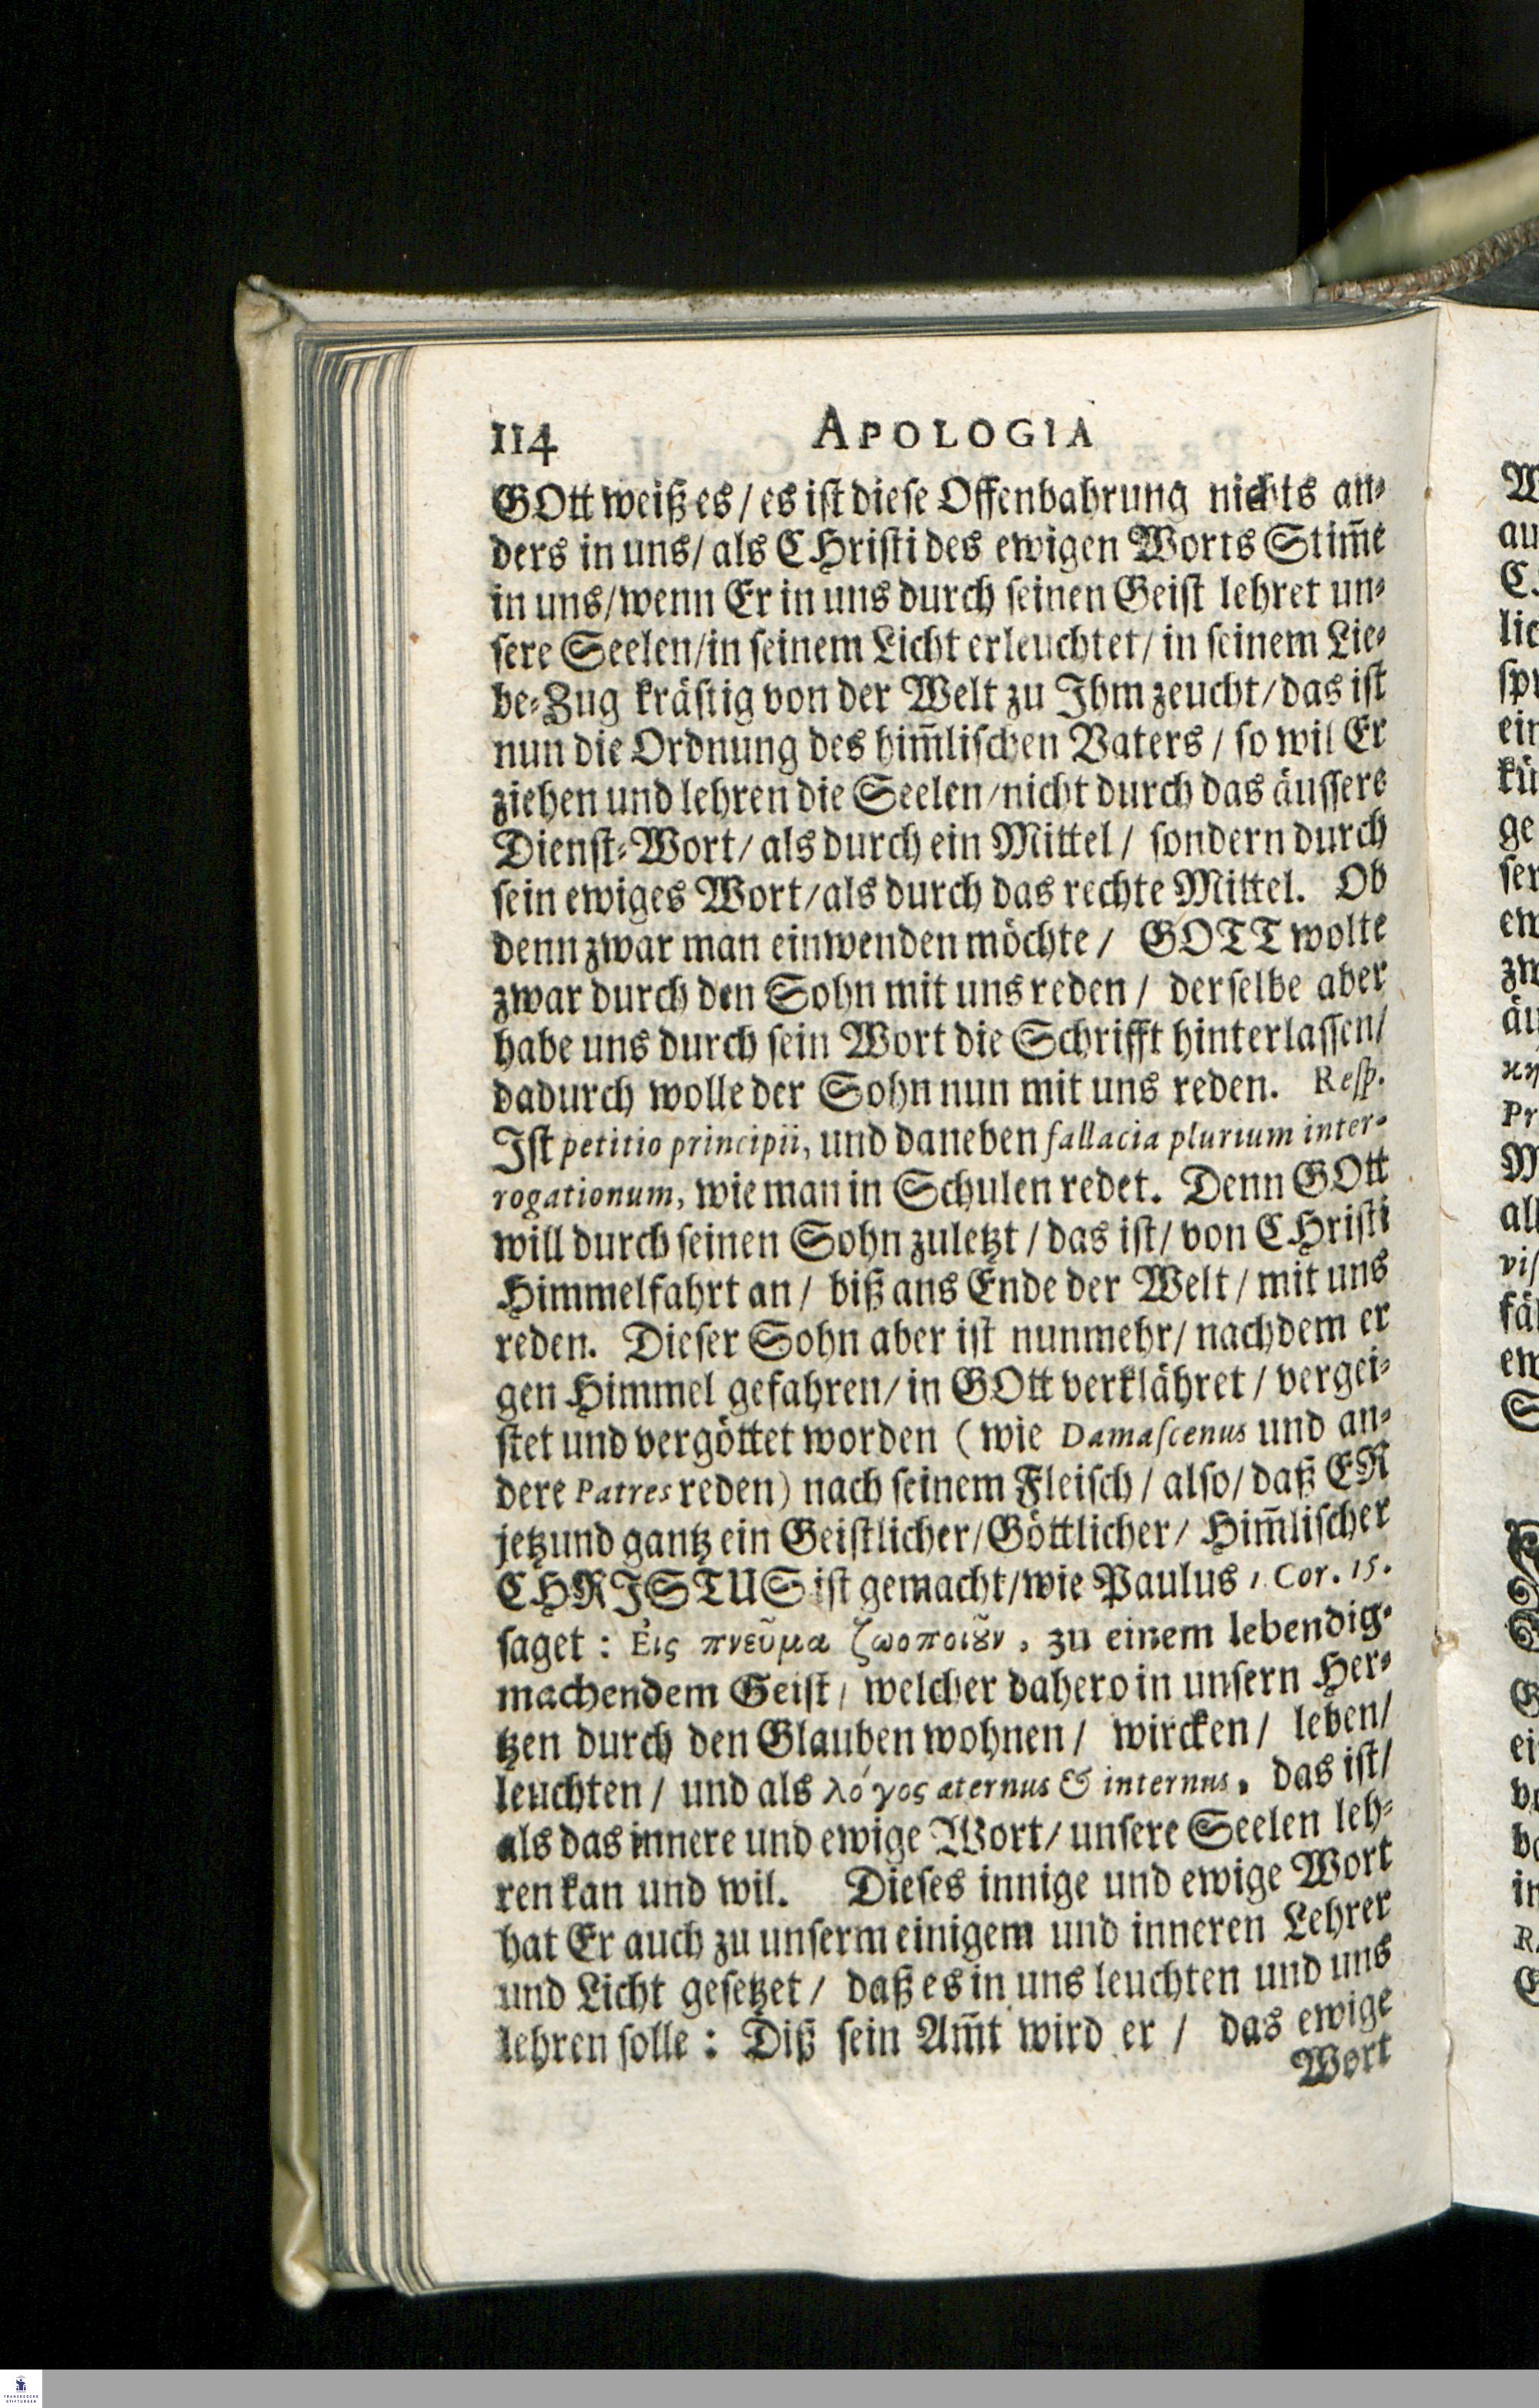 114 APOLOGIA
GOtt weiß es / es ist diese Offenbahrung nichts an⸗
ders in uns / als CHristi des ewigen Worts Stim̃e
in uns / wenn Er in uns durch seinen Geist lehret un⸗
sere Seelen / in seinem Licht erleuchtet / in seinem Lie⸗
be⸗Zug kräftig von der Welt zu Ihm zeucht / das ist
nun die Ordnung des him̃lischen Vaters / so wil Er
ziehen und lehren die Seelen / nicht durch das äussere
Dienst⸗Wort / als durch ein Mittel / sondern durch
sein ewiges Wort / als durch das rechte Mittel. Ob
denn zwar man einwenden möchte / GOTT wolte
zwar durch den Sohn mit uns reden / derselbe aber
habe uns durch sein Wort die Schrifft hinterlassen /
dadurch wolle der Sohn nun mit uns reden. Resp.
Ist petitio principii, und daneben fallacia plurium inter-
rogationum, wie man in Schulen redet. Denn GOtt
will durch seinen Sohn zuletzt / das ist / von CHristi
Himmelfahrt an / biß ans Ende der Welt / mit uns
reden. Dieser Sohn aber ist nunmehr / nachdem er
gen Himmel gefahren / in GOtt verklähret / vergei⸗
stet und vergöttet worden (wie Damascenus und an⸗
dere Patres reden) nach seinem Fleisch / also / daß ER
jetzund gantz ein Geistlicher / Göttlicher / Him̃lischer
CHRISTUS ist gemacht / wie Paulus 1 Cor. 15.
saget : Ἐις πνεῦμα ζωοποιοῦν, zu einem lebendig⸗
machendem Geist / welcher dahero in unsern Her⸗
tzen durch den Glauben wohnen / wircken / leben /
leuchten / und als λόγος æternus & internus, das ist /
als das innere und ewige Wort / unsere Seelen leh⸗
ren kan und wil. Dieses innige und ewige Wort
hat Er auch zu unserm einigem und inneren Lehrer
und Licht gesetzet / daß es in uns leuchten und uns
lehren solle : Diß sein Am̃t wird er / das ewige
Wort